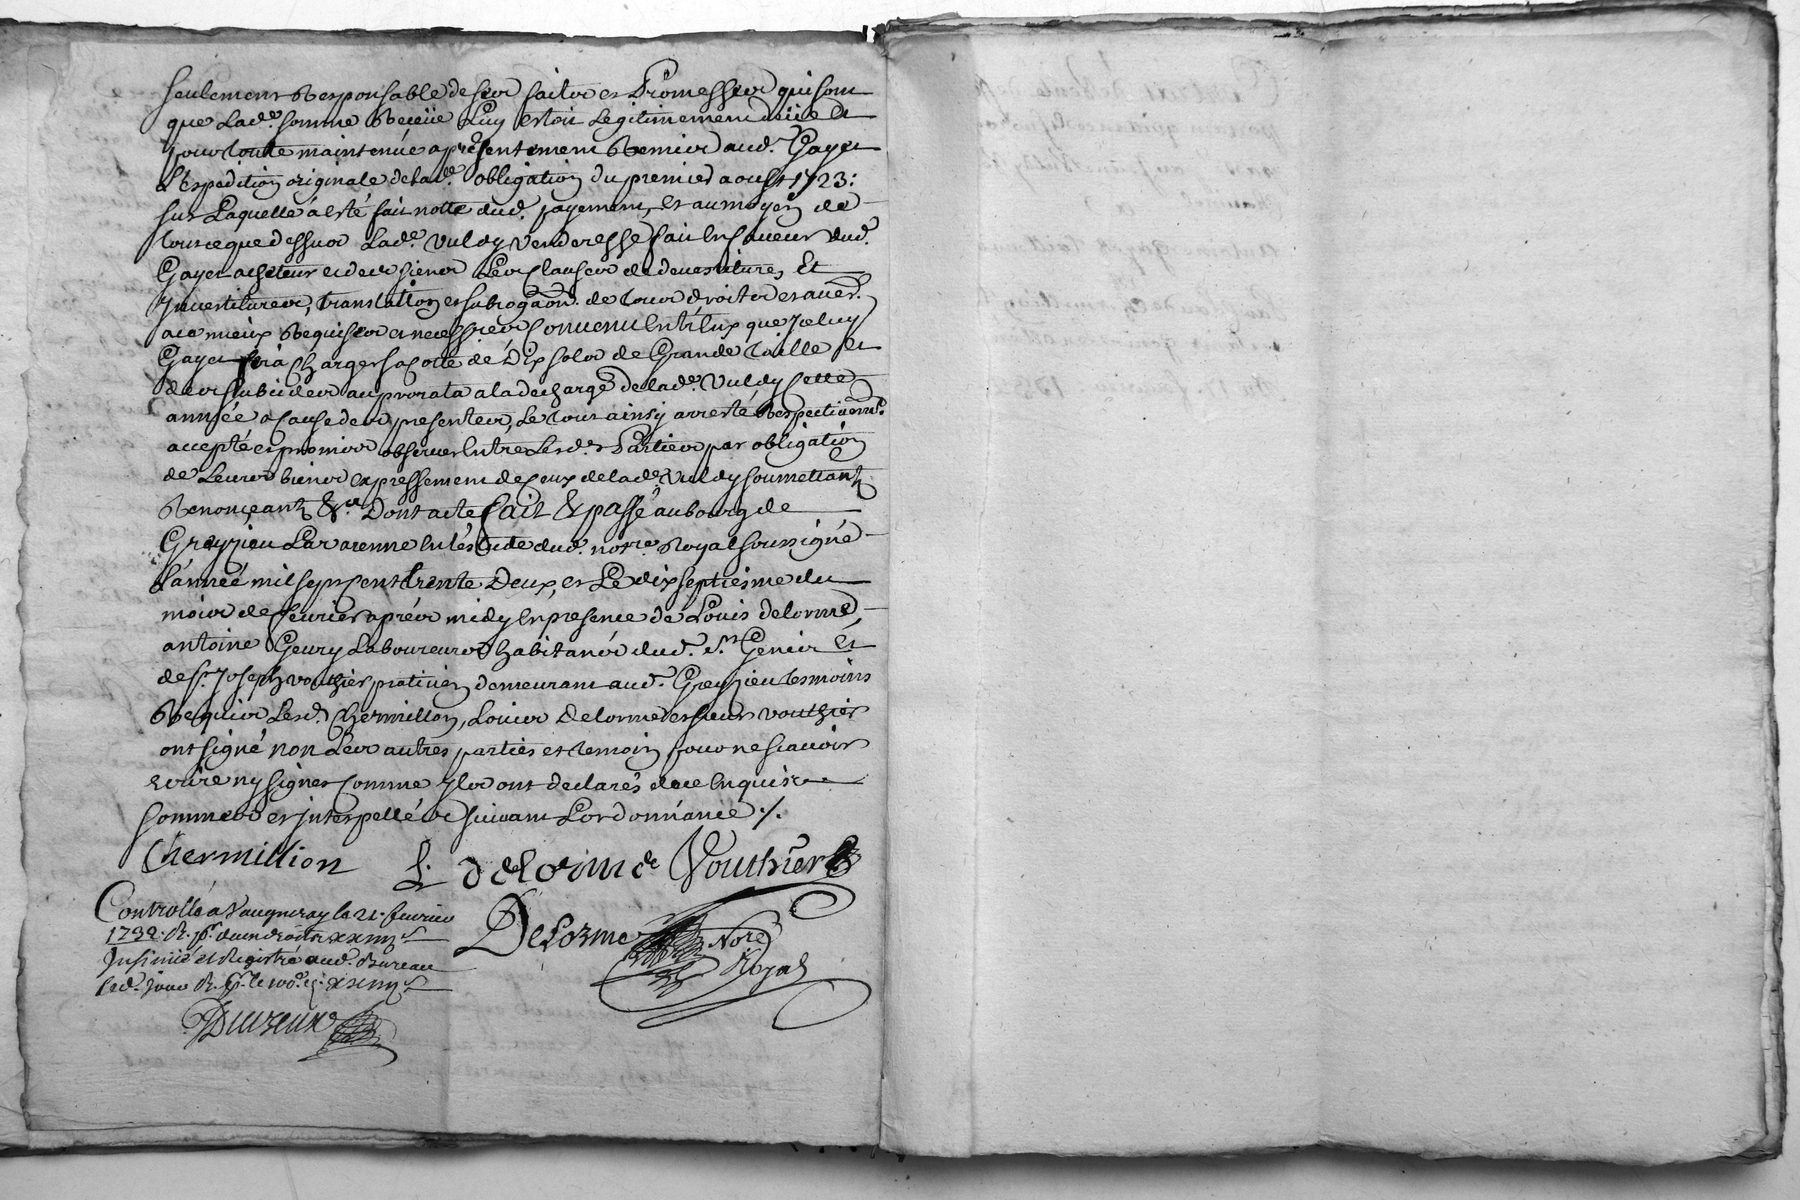 seulement Responsable de ses faitz et Promesses qui sont
que Lad.e somme Receüe Luy estoit Legitimement deüe et
pour toute maintenüe apresentement Remis aud. Gayet
L'Expedition originale de lad.e obligation du premier aoust 1723:
sur Laquelle à esté fait notte dud. payement, et au moyen de
tout ce que dessus Lad.e Vuldy Venderesse fait en faveur dud.
Gayet achetteur et des siens Les Clauses de devestitures, Et
Jnvestitures, translation et subrogaon. de tous droits et
au mieux Requises et necessres Convenu Entr'Eux que Jceluy
Gayet fera Charger sa Cotte de Dix solz de Grande Taille et
des subsides au prorata a la decharge de lad.e Vuldy Cette
année a Cause des presentes, Le tout ainsy arresté Respectivemt.
accepté et promis observer Entre Lesd.es Parties par obligation
de Leurs biens Expressement de Ceux de lad.e Vuldy soumettant
Renonçeant &.a Dont acte fait & passé au bourg de
Greyzieu Lavarenne En l'estude dud. notre. Royal soussigné
L'année mil sept Cent trente Deux, et Le dix septiesme du
mois de fevrier après midy En presence de Louis delorme,
antoine Geury Laboureurs habitans dud. St. Genis Et
de Sr. Joseph vouthier praticien demeurant aud. Greyzieu tesmoins
Requis Lesd. Chermillon, Louis Delorme et sieur vouthier
ont signé non Les autres parties et temoin pour ne sçavoir
Ecrire ny signer Comme Jls ont declarés de ce Enquis
sommés et jnterpellés suivant L'ordonnance ./.
Chermillion L. delorme Vouthier
Controllé a Vaugneray le 21. fevrier
1732. R. pr. deux droits xxiiii s
Delorme Nore
Royal
Jnsinüé et Registré aud. Bureau
led. jour R. pr. le 100.e d. xxiiii s